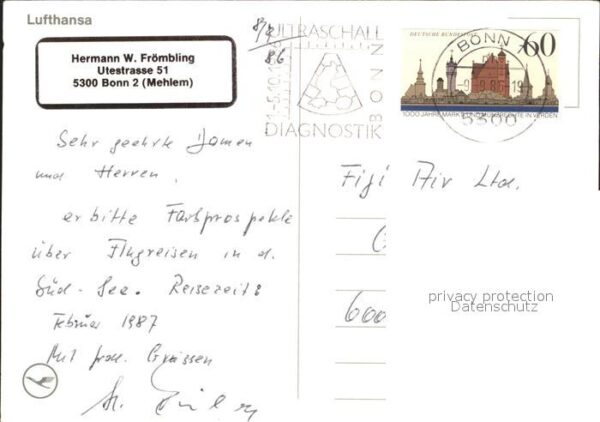 Lufthansa
Hermann W. Frömbling
Utestrasse 51
5300 Bonn 2 (Mehlem)
8/9
86
ULTRASCHALL
1-5.10.
BONN
DIAGNOSTIK
DEUTSCHE BUNDESPOST
60
1000 JAHRE MARKT- UND MÜNZRECHTE IN VERDEN
BONN
5300
Sehr geehrte Damen
und Herren,
erbitte Farbprospekte
über Flugreisen in d.
Süd-See. Reisezeit:
Februar 1987
Mit frdl. Grüssen
Fiji Air Ltd.
600
privacy protection
Datenschutz